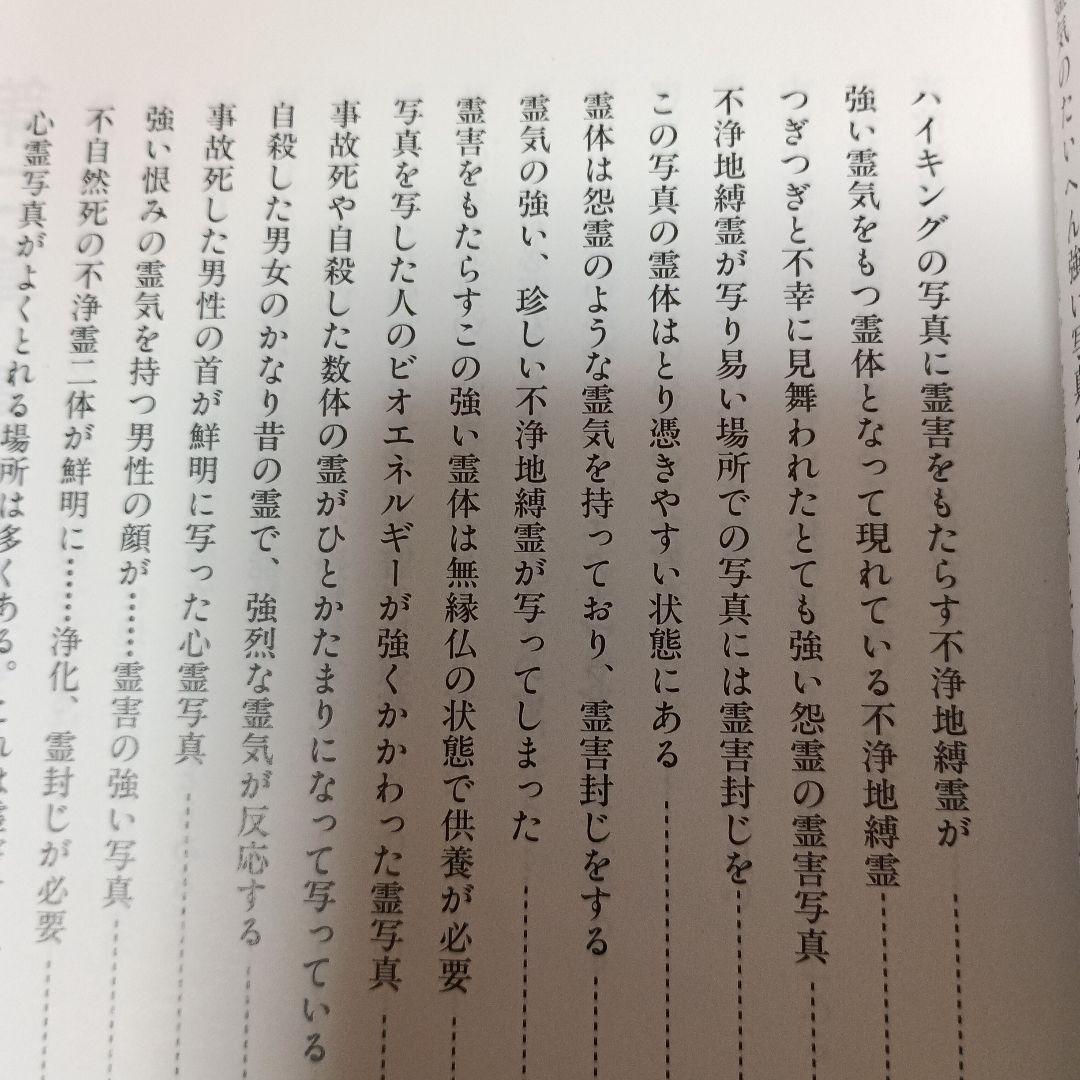 ハイキングの写真に霊害をもたらす不浄地縛霊が
強い霊気をもつ霊体となって現れている不浄地縛霊
つぎつぎと不幸に見舞われたとても強い怨霊の霊害写真
不浄地縛霊が写り易い場所での写真には霊害封じを
この写真の霊体はとり憑きやすい状態にある
霊体は怨霊のような霊気を持っており、霊害封じをする
霊気の強い、珍しい不浄地縛霊が写ってしまった
霊害をもたらすこの強い霊体は無縁仏の状態で供養が必要
写真を写した人のビオエネルギーが強くかかわった霊写真
事故死や自殺した数体の霊がひとかたまりになって写っている
自殺した男女のかなり昔の霊で、強烈な霊気が反応する
事故死した男性の首が鮮明に写った心霊写真
強い恨みの霊気を持つ男性の顔が……霊害の強い写真
不自然死の不浄霊二体が鮮明に……浄化、霊封じが必要
心霊写真がよくとれる場所は多くある。これは